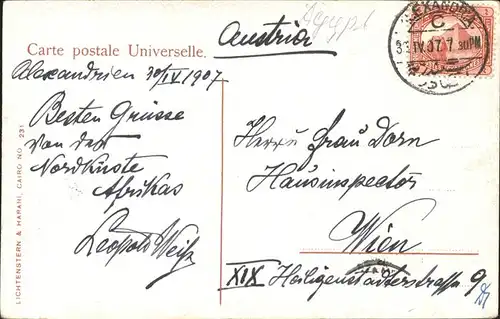 Egypt
Austria
Carte postale Universelle.
ALEXANDRIA
C
30.IV.07.7 30PM
Alexandrien 30/IV 1907
Besten Grüsse
von der
Nordküste
Afrikas
Leopold Weiß
Herrn Franz Dorn
Hausinspector
Wien
XIX Heiligenstädterstrasse 9
LICHTENSTERN & HARARI, CAIRO NO 231